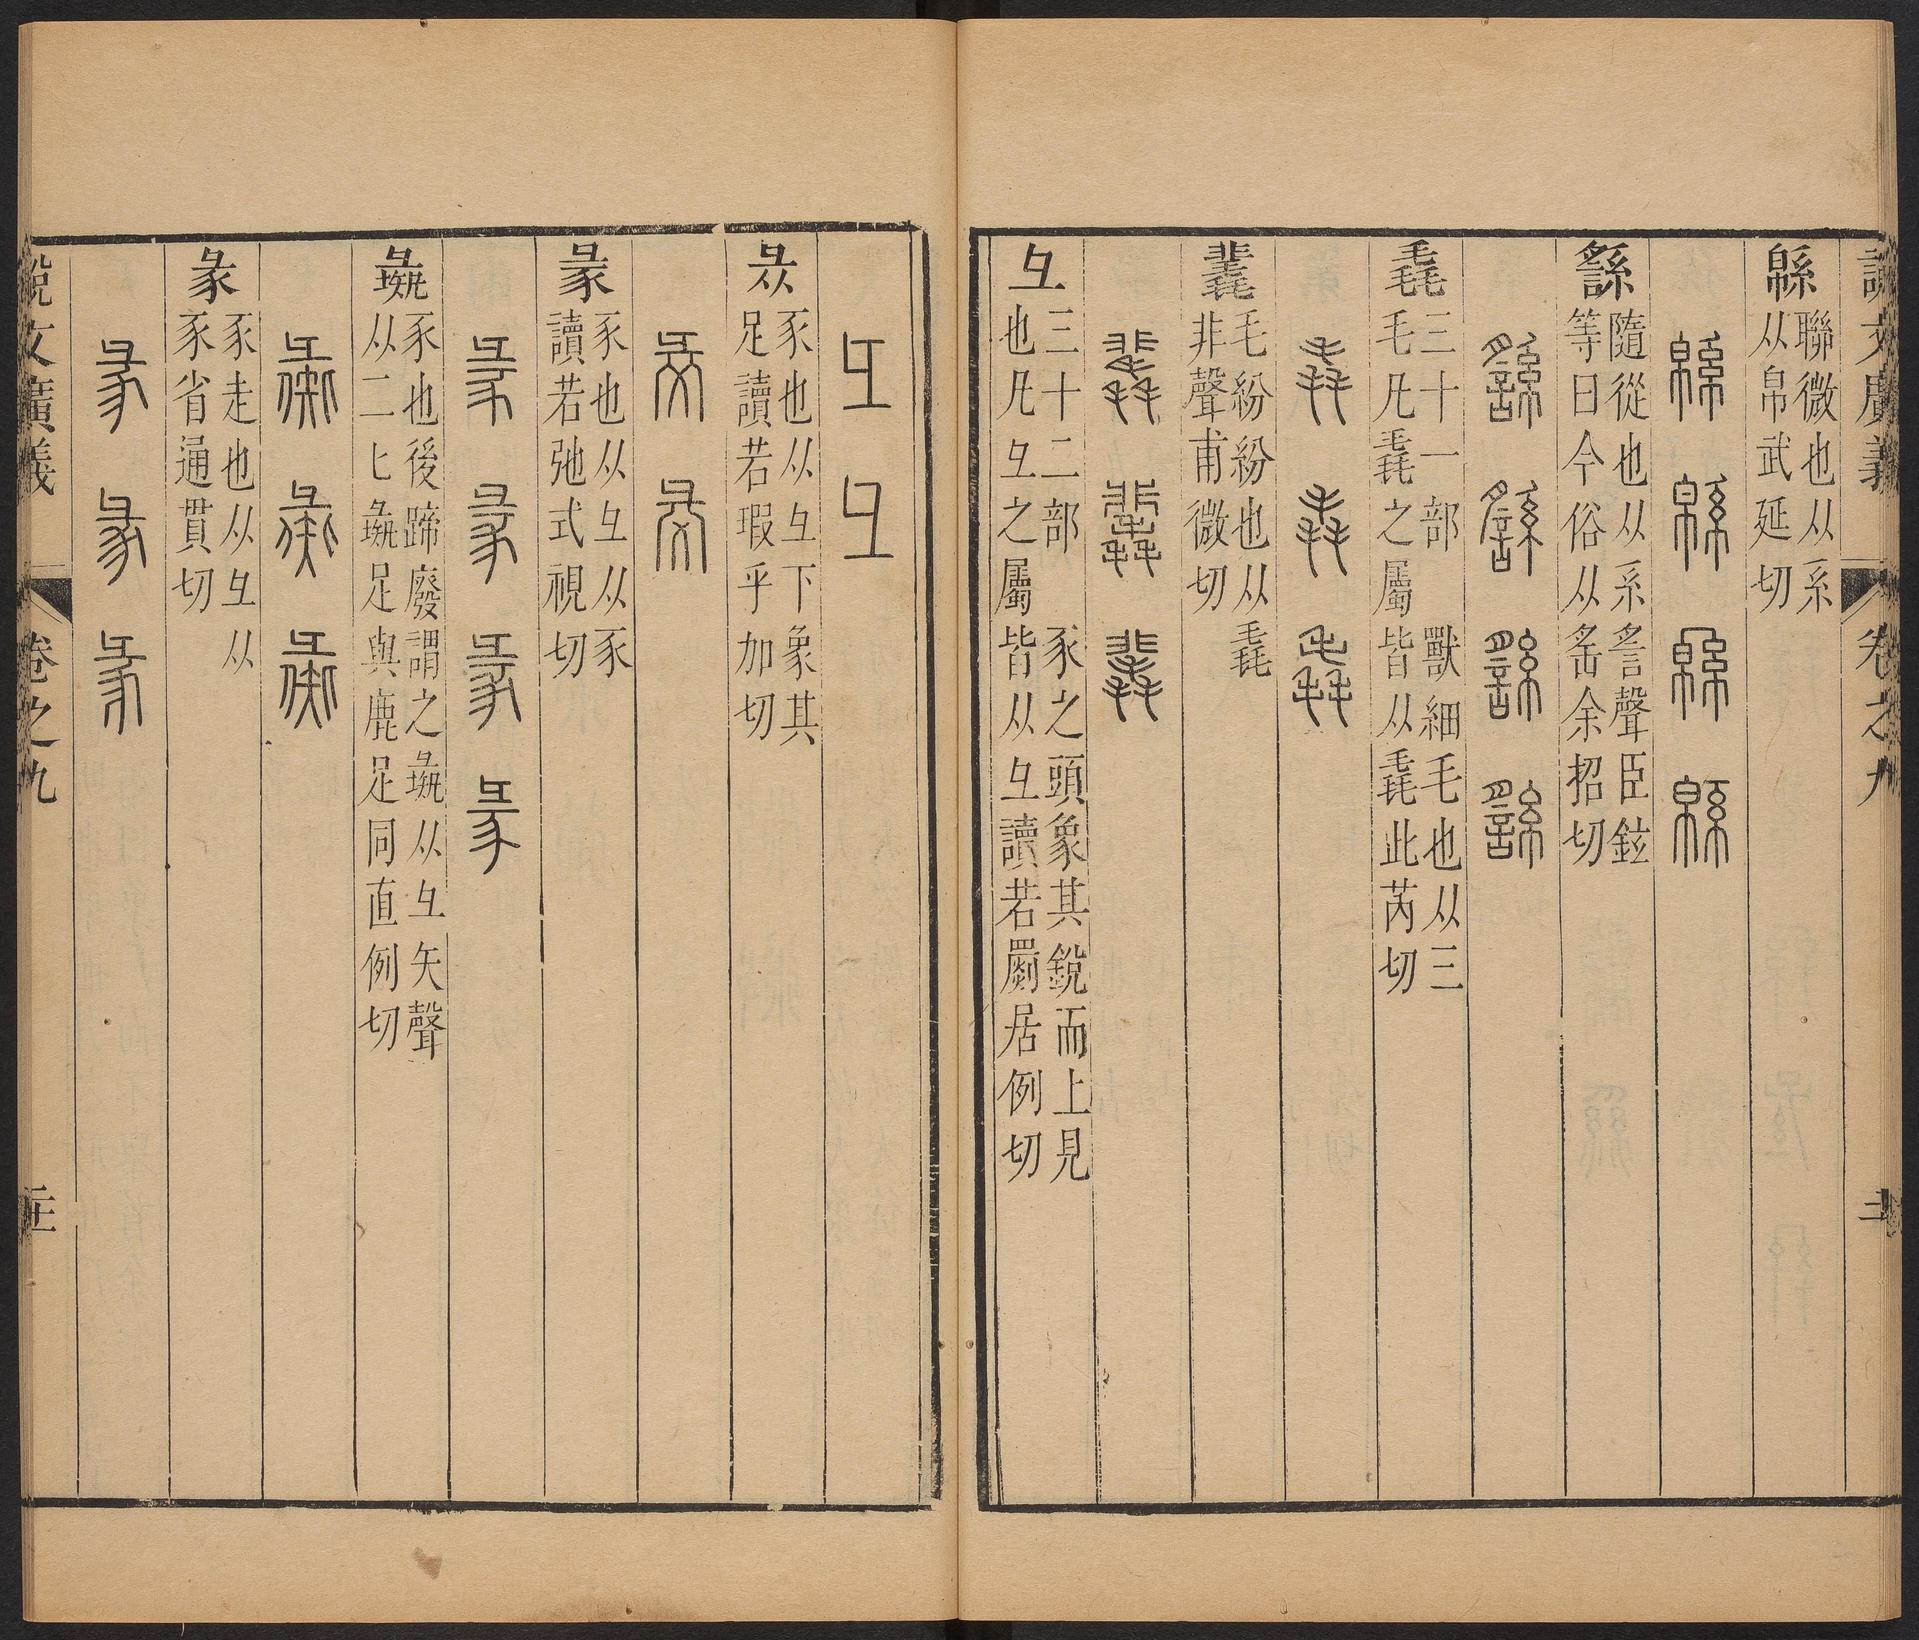 說文廣義 卷之九
緜
聯微也从系
从帛武延切
緜 緜 緜 緜
䌛
隨從也从系䚻聲臣鉉
等曰今俗从䍃余招切
䌛 䌛 䌛 䌛
毳
三十一部 獸細毛也从三
毛凡毳之屬皆从毳此芮切
毳 毳 毳
𣰿
毛紛紛也从毳
非聲甫微切
𣰿 𣰿 𣰿
彑
三十二部 豕之頭象其銳而上見
也凡彑之屬皆从彑讀若罽居例切
彑 彑
𢑓
豕也从彑下象其
足讀若瑕乎加切
𢑓 𢑓
彖
豕也从彑从豕
讀若弛式視切
彖 彖 彖 彖
彘
豕也後蹄廢謂之彘从彑矢聲
从二匕彘足與鹿足同直例切
彘 彘 彘
彖
豕走也从彑从
豕省通貫切
彖 彖 彖
說文廣義 卷之九